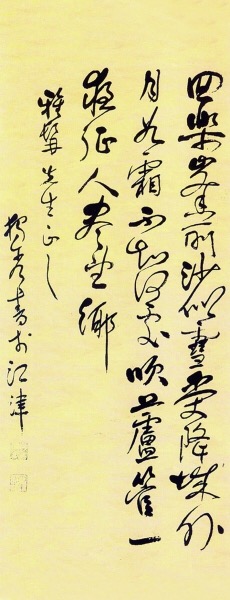 回樂峯前沙似雪受降城外
月如霜不知何處吹蘆管一
夜征人盡望鄉
先生正之
獨秀書於江津